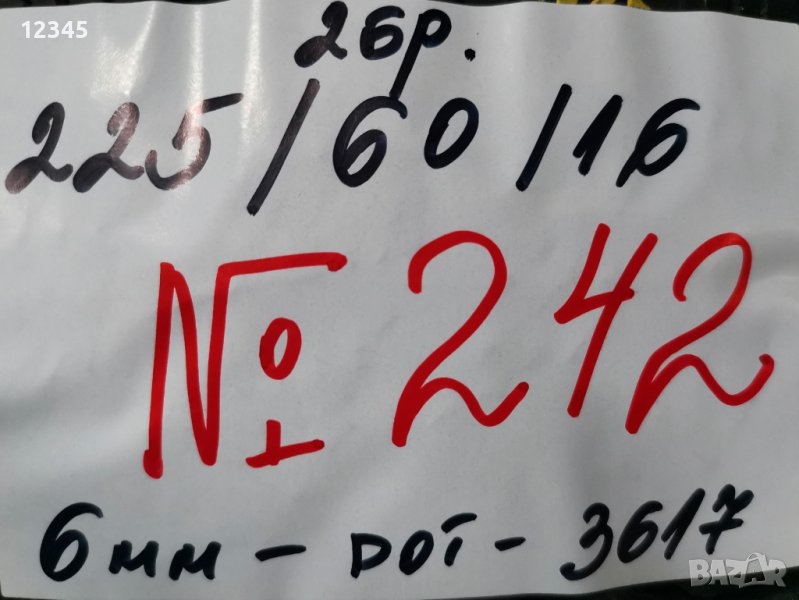 12345
2бр.
225/60/16
№ 242
6мм - DOT - 3617
BAZAR